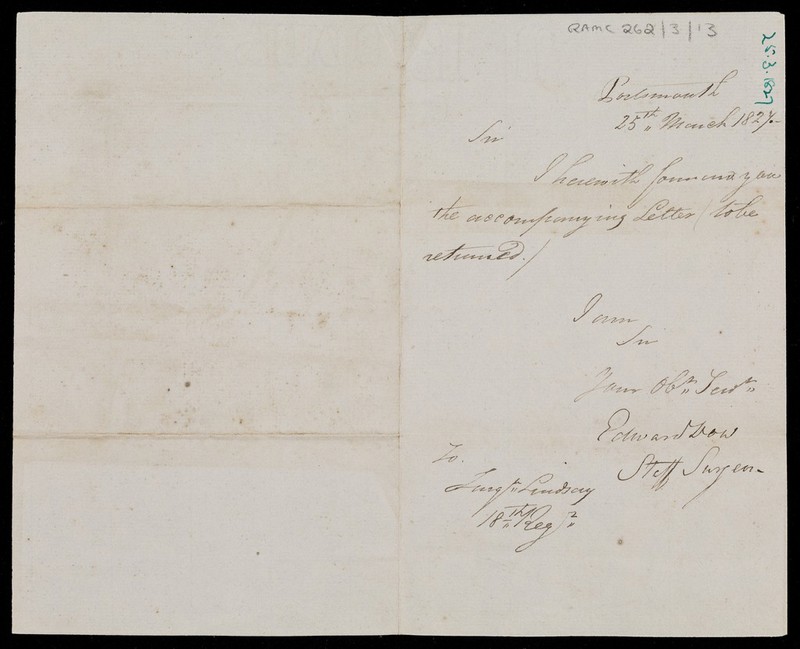 RAMC 262/3/13
25.3.1827
Portsmouth
25th March 1827
Sir
I herewith forward you
the accompanying Letter (to be
returned.)
I am
Sir
Your Obt. Servt.
Edward Dow
Staff Surgeon
To.
Surgn. Lindsay
18th Regt.